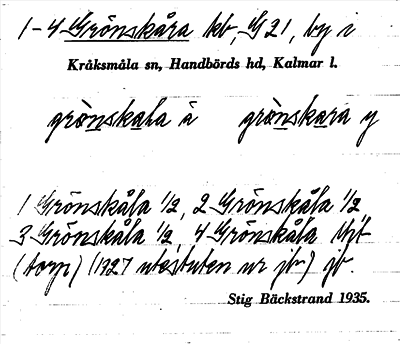 1-4 Grönskåra kb, G 21, by i
Kråksmåla sn, Handbörds hd, Kalmar l.
grònskala ä grònskara y
1 Grönskåla 1/2, 2 Grönskåla 1/2
3 Grönskåla 1/2, 4 Grönskåla
(torp) (1727 utesluten ur jb) jb.
Stig Bäckstrand 1935.